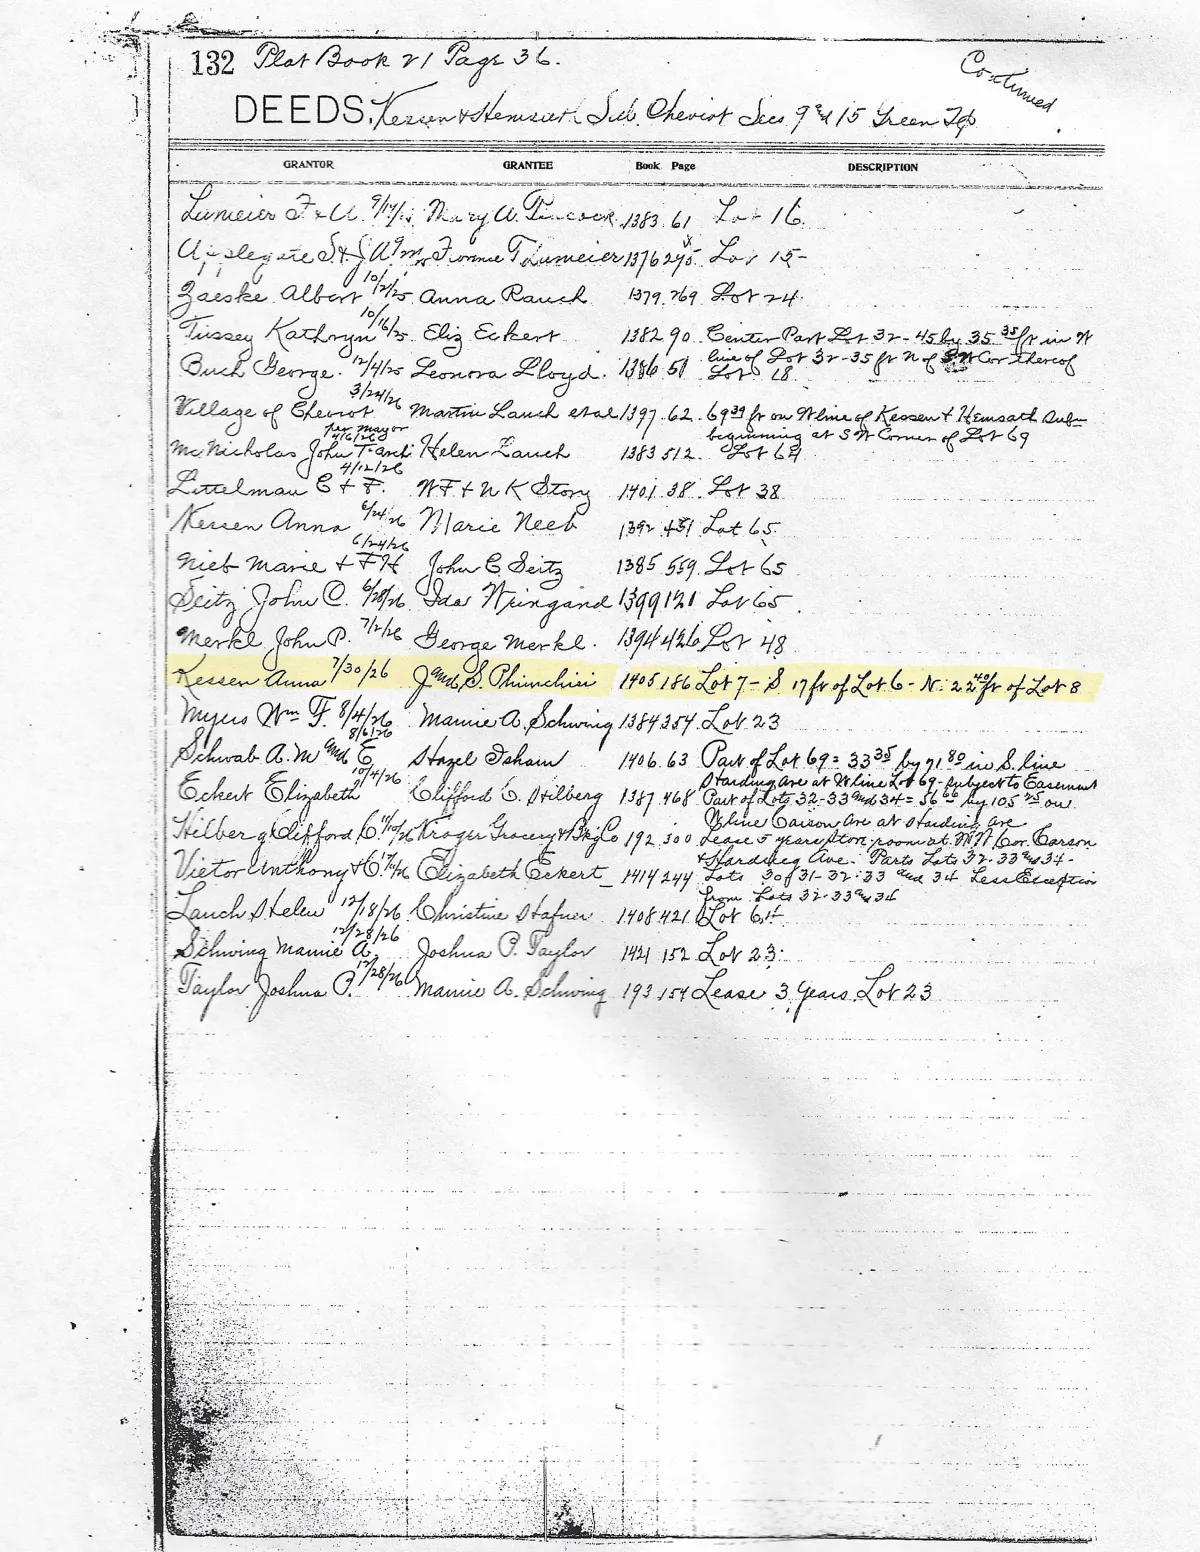 132 Plat Book 21 Page 36.
Continued
DEEDS. Kessen & Hemsath Sub. Cheviot Secs 9 and 15 Green Tp
GRANTOR GRANTEE Book Page DESCRIPTION
Lumeier F & A. Mary A. 1383 61 Lot 16
Applegate S. & J. A. T Lumeier 1376 Lot 15
Zaeske Albert 10/2/25 Anna Rauch 1379 269 Lot 24
Tussey Kathryn 10/16/25 Eliz Eckert 1382 90 Center Part Lot 32 - 45 by 35.35 ft in W
line of Lot 32 - 35 ft N of S W Cor thereof
Buch George. 12/4/25 Leonora Lloyd. 1386 51 Lot 18
Village of Cheviot 3/24/26 Martin Lauch et al 1397 62. 69 39 ft on W line of Kessen & Hemsath Sub-
per Mayor beginning at S W Corner of Lot 69
McNicholas John T-Arch 4/6/26 Helen Lauch 1383 512. Lot 64
Littelman C & F. 4/12/26 W F & N K Story 1401 38. Lot 38
Kessen Anna 6/24/26 Marie Neeb 1392 431 Lot 65
Nieb Marie & F H 6/24/26 John C. Seitz 1385 559. Lot 65
Seitz John C. 6/28/26 Ida Wringand 1399 121 Lot 65
Merkl John P. 7/2/26 George Merkl. 1394 426 Lot 48
Kessen Anna 7/30/26 J and S. Phinchisi 1405 186 Lot 7 - S 17 ft of Lot 6 - N. 22 40 ft of Lot 8
Myers Wm F. 8/4/26 Mamie A. Schwing 1384 354 Lot 23
Schwab A. M and E 8/6/26 Hazel Isham 1406 63 Part of Lot 69 = 33 35 by 71 80 in S. line
Harding Ave at W line Lot 69 - subject to Easement
Eckert Elizabeth 10/4/26 Clifford C. Hilberg 1387 468 Part of Lots 32-33 and 34 = 56 66 by 105 75 on
N line Carson Ave at Harding Ave
Hilberg Clifford C. 11/10/26 Kroger Grocery & Bkg Co 192 300 Lease 5 years Store room at N W Cor. Carson
& Harding Ave. Parts Lots 32-33 and 34-
Victor Anthony & C. Elizabeth Eckert 1414 244 Lots 30 31-32-33 and 34 Less Exception
from Lots 32-33 and 34
Lauch Helen 12/18/26 Christine Hafner 1408 421 Lot 64
Schwing Mamie A. 12/28/26 Joshua P. Taylor 1421 152 Lot 23
Taylor Joshua P. 12/28/26 Mamie A. Schwing 193 154 Lease 3 Years. Lot 23